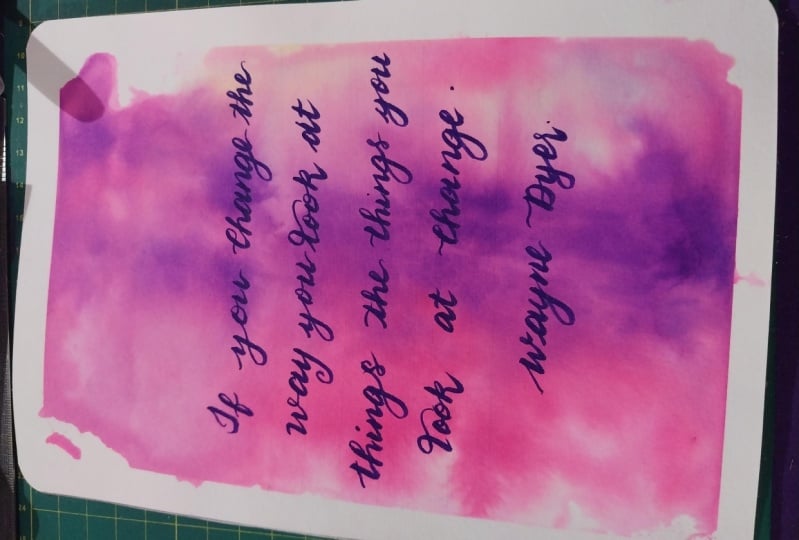 If you change the
way you look at
things the things you
look at change.
Wayne Dyer.